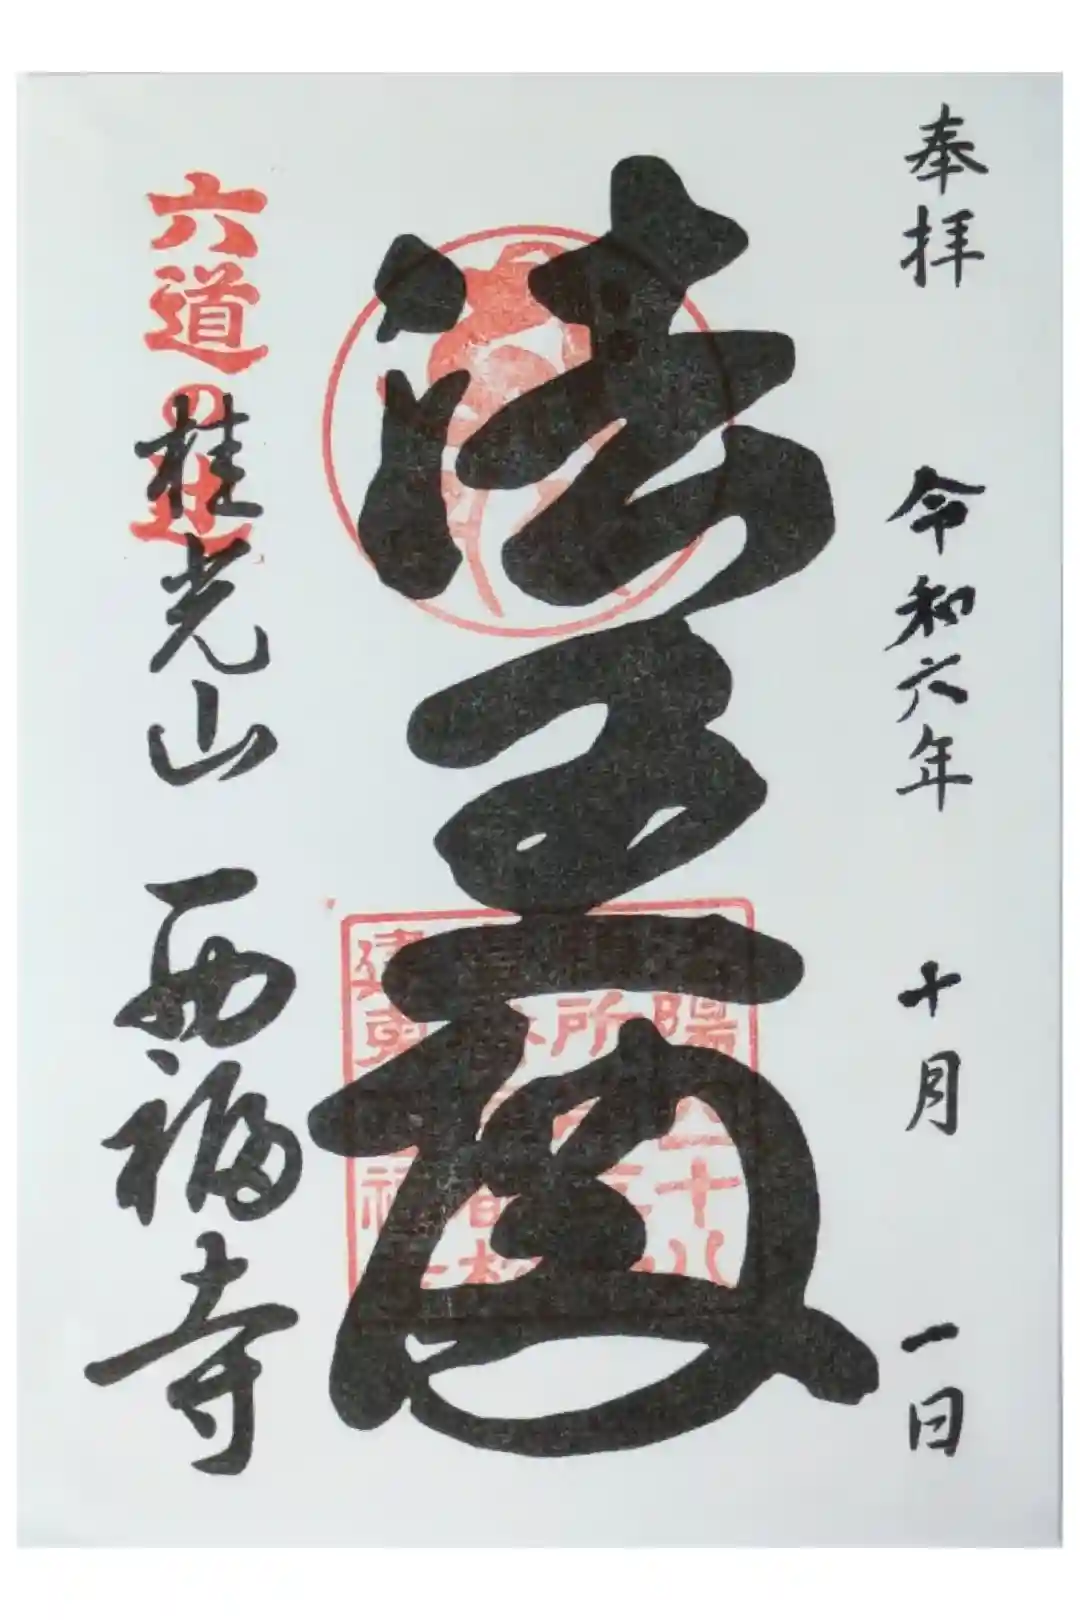 奉拝
令和六年 十月 一日
法王殿
六道の辻
桂光山 西福寺